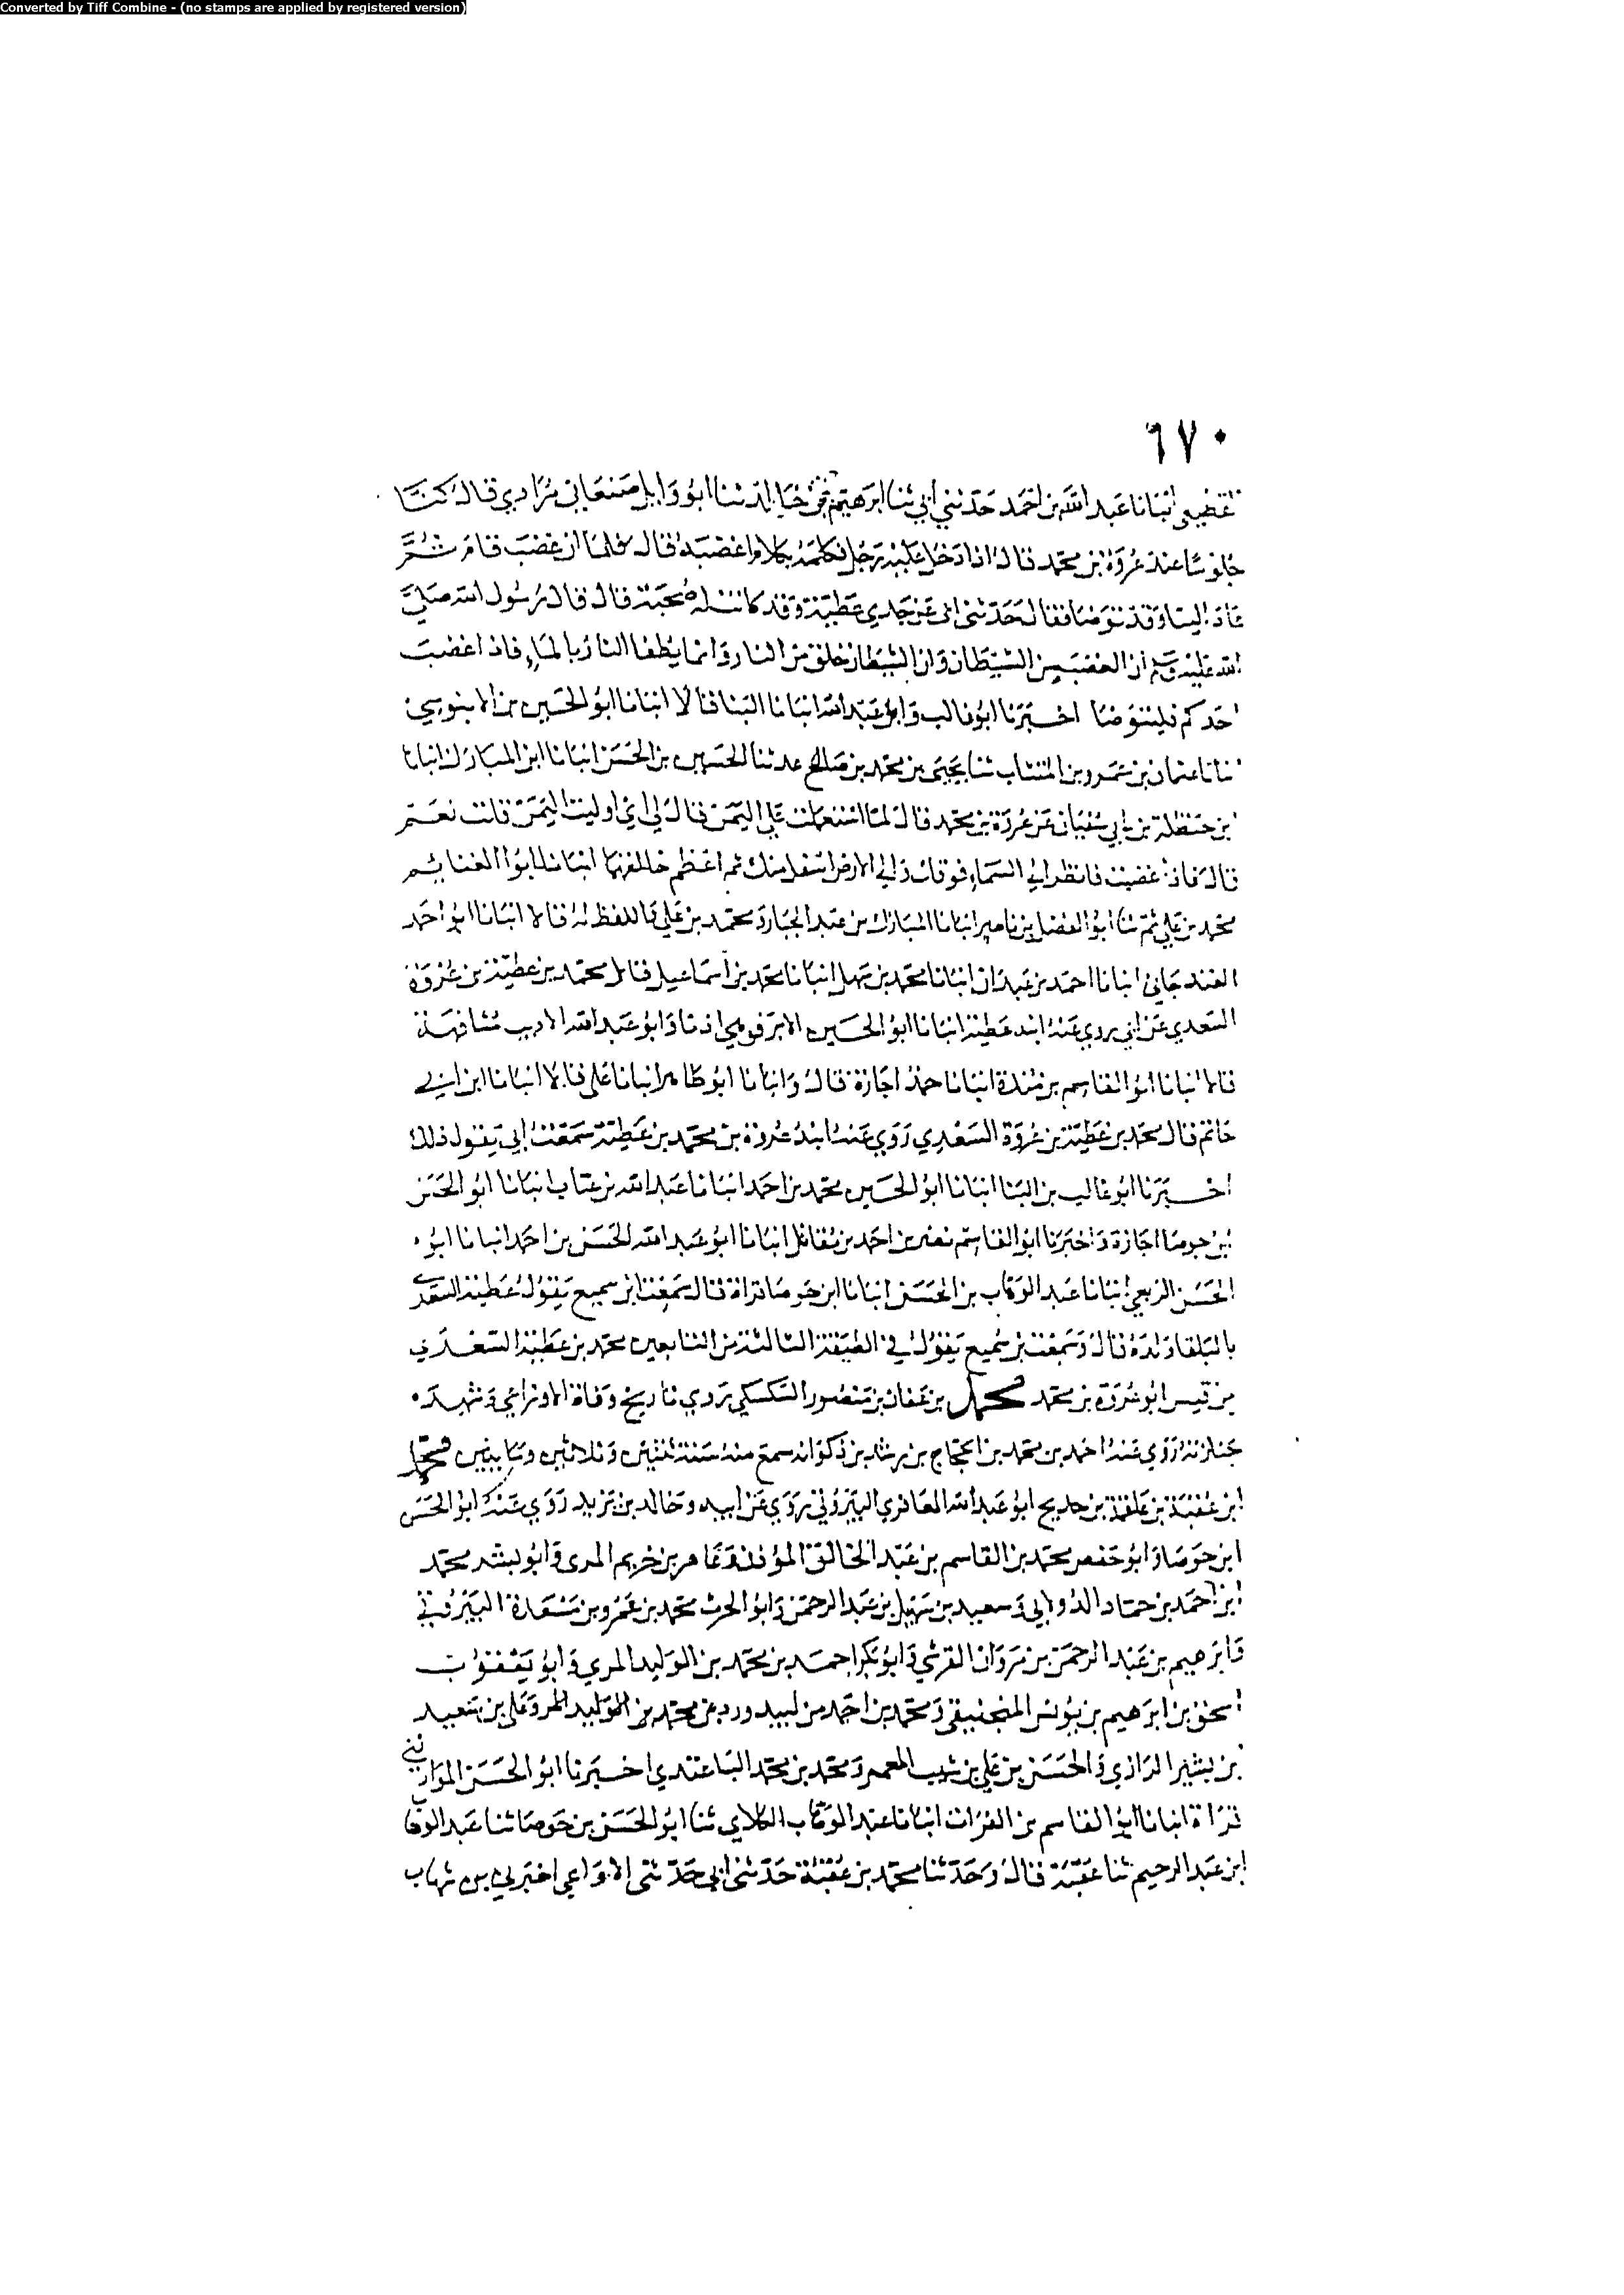 Converted by Tiff Combine - (no stamps are applied by registered version)
٦٧٠
انبانا عبد الله بن احمد حدثني أبي ثنا ابرهيم بن خالد ثنا ابو وايل صنعاني مرادي قال كنا
جلوسا عند عروة بن محمد قال اذا دخل عليه رجل فكلمه بكلام اغضبه قال فلما ان غضب قام ثم
عاد الينا وقد توضا فقال حدثني ابي عن جدي عطية وقد كانت له صحبة قال قال رسول الله صلى
الله عليه وسلم ان الغضب من الشيطان وان الشيطان خلق من النار وانما يطفا النار بالماء فاذا غضب
احدكم فليتوضا اخبرنا ابو غالب وابو عبد الله انبانا البنا قالا انبانا ابو الحسين بن الابنوسي
انبانا عثمان بن عمرو بن المنتاب ثنا يحيى بن محمد بن صالح ثنا الحسين بن الحسن انبانا ابن المبارك انبانا
ابن حنظلة بن ابي سفيان عن عروة بن محمد قال لما استعملت علي اليمن قال لي ابي اوليت اليمن قلت نعم
قال فاذا غضبت فانظر الي السماء فوقك والي الارض اسفل منك ثم اعظم خالقهما انبانا ابو الغنايم
محمد بن علي ثم ثنا ابو الفضل بن ناصر انبانا المبارك بن عبد الجبار ومحمد بن علي واللفظ له قالا انبانا ابو احمد
الغندجاني انبانا احمد بن عبدان انبانا محمد بن سهل انبانا محمد بن اسماعيل قال محمد بن عطية بن عروة
السعدي عن ابي روي عنه ابنه عطية انبانا ابو الحسين الابرقوهي اذنا وابو عبد الله الاديب مشافهة
قالا انبانا ابو القاسم بن مندة انبانا حمد اجازة قال وانبانا ابو طاهر انبانا علي قالا انبانا ابن ابي
حاتم قال محمد بن عطية بن عروة السعدي روي عنه ابنه عروة بن محمد بن عطية سمعت ابي يقول ذلك
اخبرنا ابو غالب بن البنا انبانا ابو الحسين محمد بن احمد انبانا عبد الله بن عتاب انبانا ابو الحسن
بن جوصا اجازة واخبرنا ابو القاسم نصر بن احمد بن مقاتل انبانا ابو عبد الله الحسن بن احمد انبانا ابو
الحسن الربعي انبانا عبد الوهاب بن الحسن انبانا ابن جوصا قراة قال سمعت ابن سميع يقول عطية السعدي
بالبلقا ولده قال وسمعت بن سميع يقول في الطبقة الثالثة من التابعين محمد بن عطية السعدي
من قيس ابو عروة بن محمد محمد بن عفان بن منصور السكسكي يروي تاريخ وفاة الاوزاعي وشهد
جنازته روي عنه احمد بن محمد بن الحجاج بن رشدين ذكر انه سمع منه سنة اثنتين وثلاثين ومايتين محمد
ابن عقبة بن علقمة بن حديج ابو عبد الله المعافري البيروتي روي عن ابيه وخالد بن يزيد روي عنه ابو الحسن
ابن جوصا وابو حفص محمد بن القاسم بن عبد الخالق المؤذن وعامر بن خريم المري وابو بشر محمد
ابن احمد بن حماد الدولابي وسعيد بن سهيل بن عبد الرحمن وابو الحرث محمد بن عمرو بن مسعدة البيروتي
وابرهيم بن عبد الرحمن بن مروان القرشي وابو بكر احمد بن محمد بن الوليد المري وابو يعقوب
اسحق بن ابرهيم بن يونس المنجنيقي ومحمد بن احمد بن لبيد ورد بن محمد بن الوليد المر وعلي بن سعيد
بن بشير الرازي والحسن بن علي بن شبيب المعمر ومحمد بن محمد الباغندي اخبرنا ابو الحسن الموازيني
قراة انبانا ابو القاسم بن الفرات انبانا عبد الوهاب الكلابي ثنا ابو الحسن بن جوصا ثنا عبد الوهاب
ابن عبد الرحيم ثنا عقبة قال وحدثنا محمد بن عقبة حدثني ابي حدثني الاوزاعي اخبرني بن شهاب